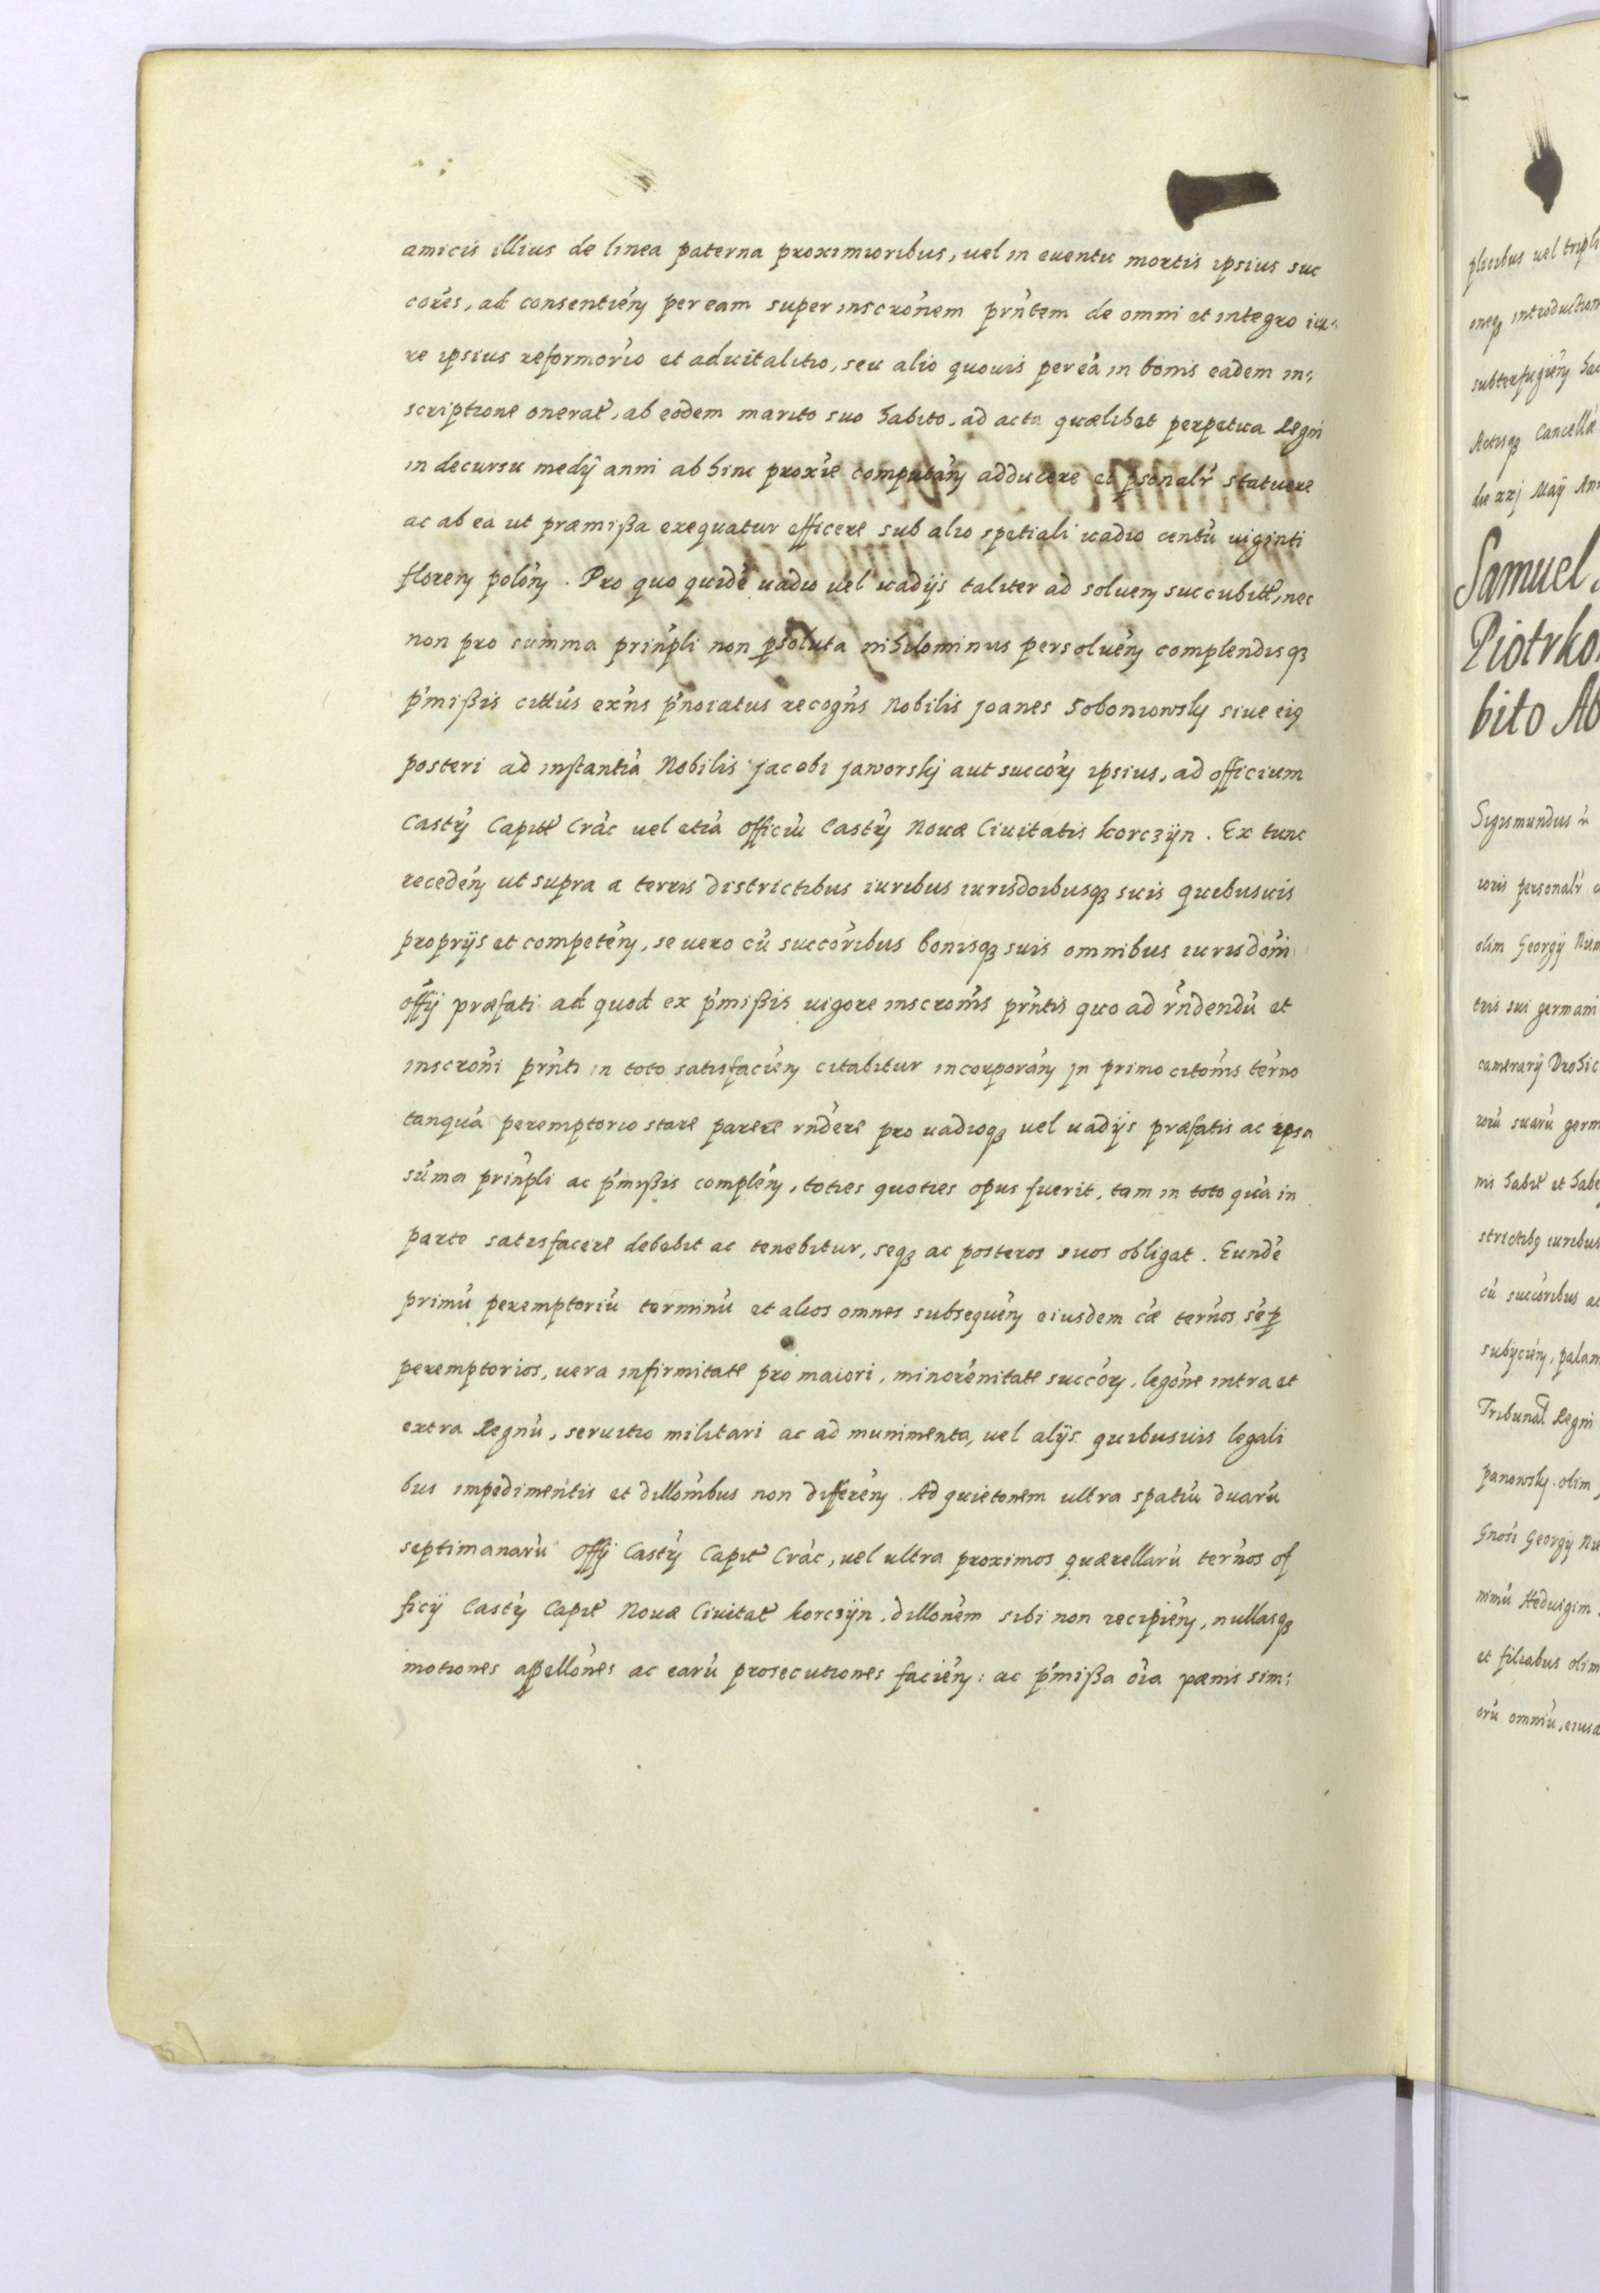 amicis illius de linea paterna proximioribus, uel in euentu mortis ipsius suc
corẽs, ad consentieñ per eam super inscrõnem prñtem de omni et integro iu:
re ipsius reformorĩo et aduitalitio, seu alio quouis per eã in bonis eadem in:
scriptione onerat̃, ab eodem marito suo habito, ad acta quælibet perpetua Regni
in decursu medÿ anni ab hinc proxĩe computañ adducere et psonalr̃ statuere
ac ab ea ut præmißa exequatur efficere sub alio spetiali uadio centũ uiginti
floreñ poloñ. Pro quo quidẽ uadio uel uadijs taliter ad soluen succubitt̃, nec
non pro summa prinp̃li non psoluta nihilominus persolueñ complendisq3
p̃mißis cittũs exñs p̃noiatus recogñs Nobilis Joanes Soboniowsky siue eiq
posteri ad instantiã Nobilis Jacobi Jaworskj aut succoꝝ ipsius, ad officium
Castꝝ Capitt̃ Crãc uel etiã officiũ Castꝝ Nouæ Ciuitatis korczÿn. Ex tunc
recedeñ ut supra a terris districtibus iuribus iurisdoĩbusq3 suis quibusuis
proprijs et competeñ, se uero cũ succorĩbus bonisq3 suis omnibus iurisdoñi
offÿ præfati ad quod ex p̃mißis uigore inscrõnis prñtis quo ad rñdendũ et
inscrõni prñti in toto satisfacieñ citabitur incorporañ Jn primo citoñis terño
tanquã peremptorio stare parere rñdere pro uadioq3 uel uadÿs præfatis ac ipsa
sũma prinp̃li ac p̃mißis compleñ, toties quoties opus fuerit, tam in toto quã in
parte satisfacere debebit ac tenebitur, seq3 ac posteros suos obligat. Eundẽ
primũ peremptoriũ terminũ et alios omnes subsequeñ eiusdem cæ̃ terños sẽp
peremptorios, uera infirmitate pro maiori, minorẽnitate succoꝝ, legoñe intra et
extra Regnũ, seruitio militari ac ad munimenta, uel alÿs quibusuis legali
bus impedimentis et dilloñibus non differeñ. Ad quietoñem ultra spatiũ duarũ
septimanarũ offÿ Castꝝ Capit̃ Crãc, uel ultra proximos quærellarũ terños of
ficÿ Castꝝ Capit̃ Nouæ Ciuitat̃ korczÿn, dilloñem sibi non recipieñ, nullasq3
motiones appelloñes ac earũ prosecutiones facieñ: ac p̃mißa oĩa pænis sim:
plicibus uel tripli
oneq3 introduction
subterfugieñ
Actisq3 Cancellæ
die xxj Maÿ An
Samuel
Piotrko
bito Ab
Sigismundus
ioris personalr̃
olim Georgÿ
tris sui germani
camerarÿ Drohic
rorũ suarũ germ
nis habit̃ et habe
strictibq iuribus
cũ succorĩbus ac
subÿcieñ, palam
Tribunal Regni
panowsky olim
Gnosi Georgÿ
nimũ Heduigim
et filiabus olim
orũ omniũ, eiusd